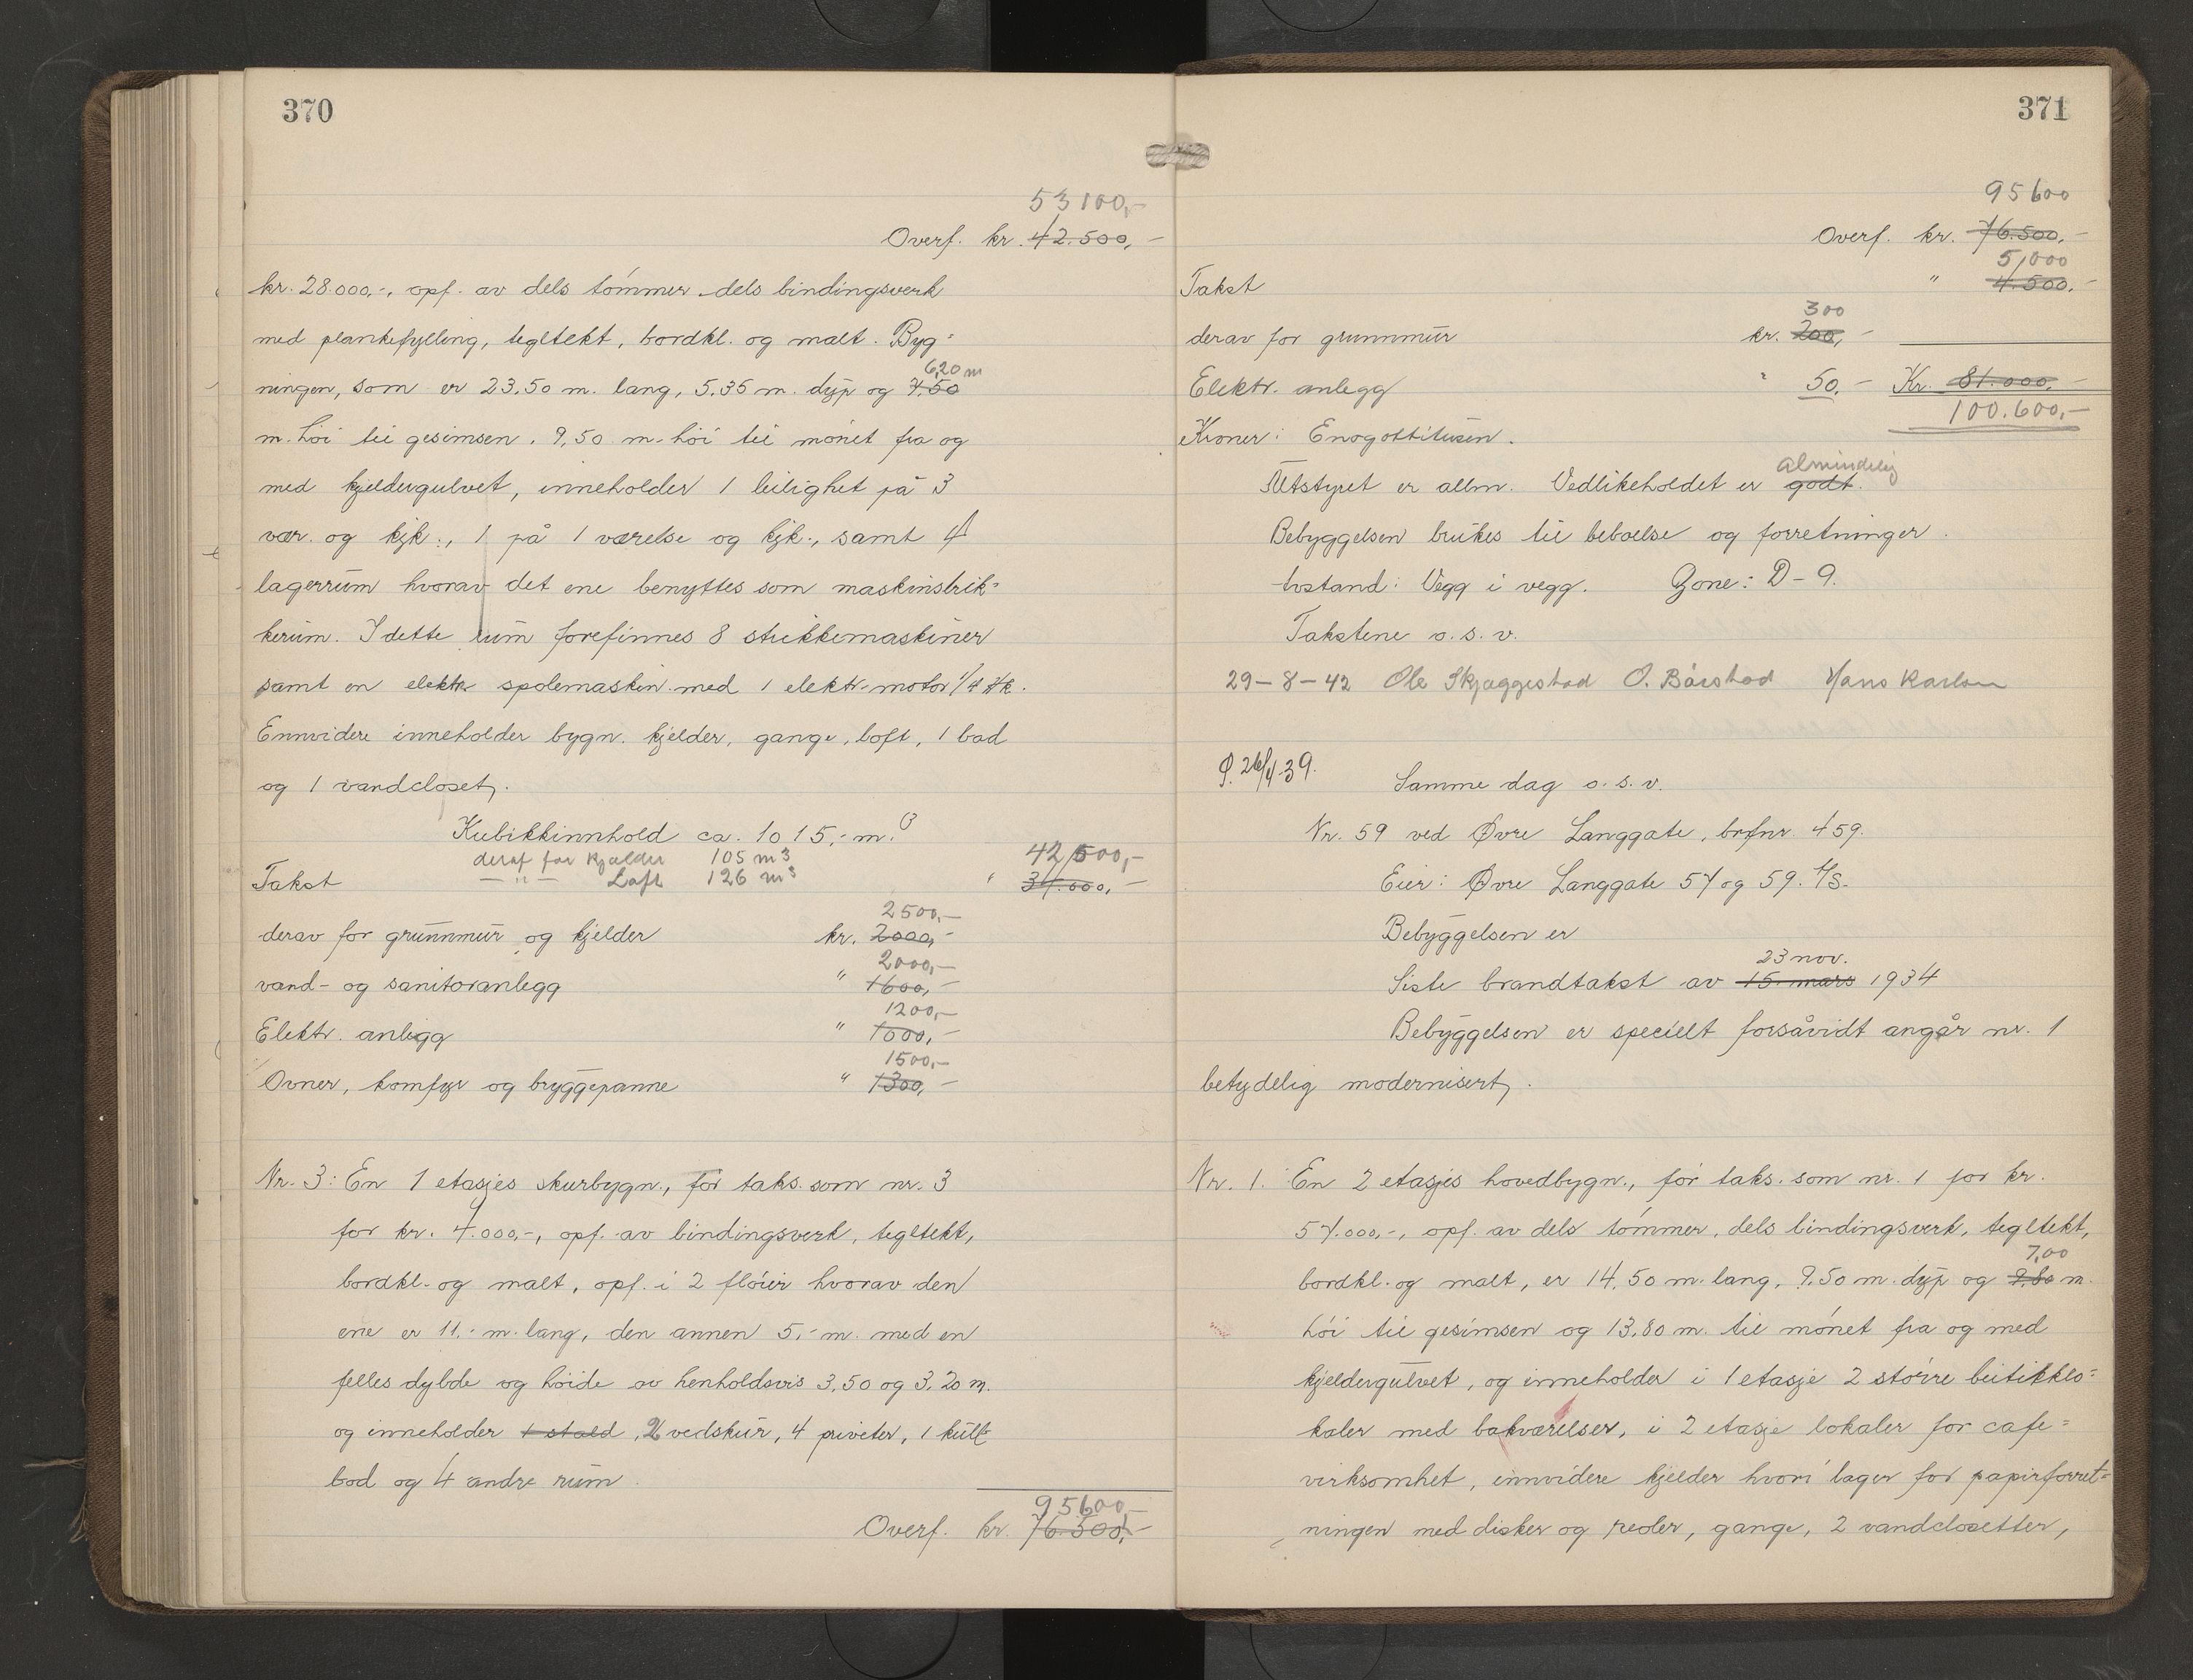 370
53100,-
Overf. kr. 42.500,-
kr. 28.000,-, opf. av dels tømmer dels bindingsverk
med plankefylling, tegltekt, bordkl. og malt. Byg=
6,20 m
ningen, som er 23,50 m. lang, 5,35 m. dyp og 7,50
m. høi til gesimsen, 9,50 m. høi til mønet fra og
med kjeldergulvet, inneholder 1 leilighet på 3
vær. og kjk., 1 på 1 værelse og kjk., samt 4
lagerrum hvorav det ene benyttes som maskinstrik=
kerum. I dette rum forefinnes 8 strikkemaskiner
samt en elektr. spolemaskin med 1 elektr. motor 1/4 Hk.
Ennvidere inneholder bygn. kjelder, gange, loft, 1 bad
og 1 vandcloset.
Kubikkinnhold ca. 1015,- m.3
deraf for Kjælder 105 m3
42,500,-
Takst — " — Loft 126 m3 " 34.000,-
2500,-
derav for grunnmur og kjelder kr. 2000,-
2000,-
vand- og sanitæranlegg " 1600,-
1200,-
Elektr. anlegg " 1000,-
1500,-
Ovner, komfyr og bryggepanne " 1300,-
Nr. 3: En 1 etasjes skurbygn., før taks. som nr. 3
for kr. 4.000,-, opf. av bindingsverk, tegltekt,
bordkl. og malt, opf. i 2 fløier hvorav den
ene er 11,- m. lang, den annen 5,- m. med en
felles dybde og høide av henholdsvis 3,50 og 3,20 m.
og inneholder 1 stald, 2 vedskur, 4 priveter, 1 kull
bod og 4 andre rum.
95600,-
Overf. kr. 76.500,-
371
95600
Overf. kr. 76.500,-
5,000
Takst " 4.500,-
300
derav for grunnmur kr. 200,-
Elektr. anlegg " 50,- Kr. 81.000,-
100.600,-
Kroner: Enogottitusen.
Almindelig
Utstyret er allm. Vedlikeholdet er godt.
Bebyggelsen brukes til beboelse og forretninger.
Avstand: Vegg i vegg. Zone: D-9.
Takstene o.s.v.
29-8-42 Ole Skjaggestad O. Bårstad Hans Karlsen
P. 26/4.39.
Samme dag o.s.v.
Nr. 59 ved Øvre Langgate, brfnr. 459.
Eier: Øvre Langgate 57 og 59. A/S.
Bebyggelsen er
23 nov.
Siste brandtakst av 15. mars 1934
Bebyggelsen er specielt forsåvidt angår nr. 1
betydelig modernisert.
Nr. 1. En 2 etasjes hovedbygn., før taks. som nr. 1 for kr.
57.000,-, opf. av dels tømmer, dels bindingsverk, tegltekt,
7,00
bordkl. og malt, er 14,50 m. lang, 9,50 m. dyp og 9,80 m.
høi til gesimsen og 13,80 m. til mønet fra og med
kjeldergulvet, og inneholder i 1 etasje 2 større butikklo=
kaler med bakværelser, i 2 etasje lokaler for cafe=
virksomhet, ennvidere kjelder hvori lager for papirforret=
ningen med disker og reoler, gange, 2 vandclosetter,